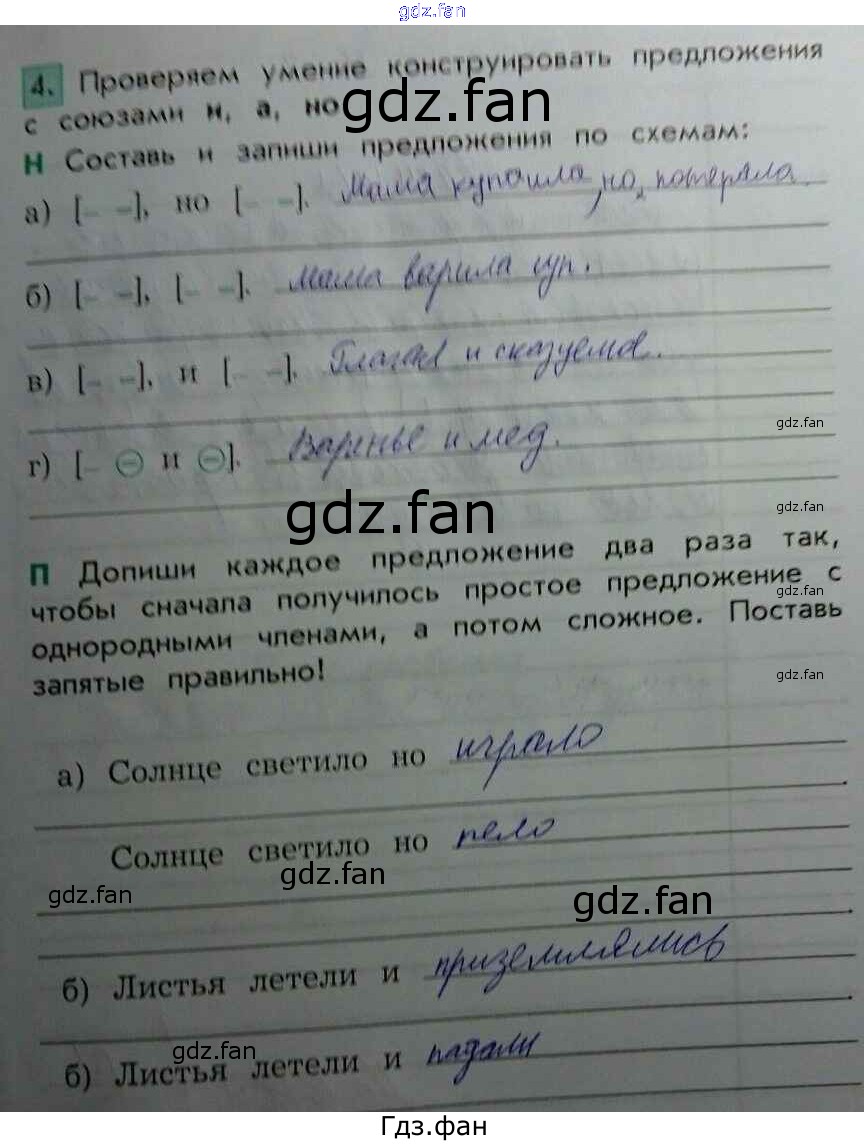 gdz.fan
4. Проверяем умение конструировать предложения
с союзами и, а, но
gdz.fan
Н Составь и запиши предложения по схемам:
а) [– –], но [– –]. Мама купила, но потеряла.
б) [– –], [– –]. Мама варила суп.
в) [– –], и [– –]. Глагол и сказуемое.
gdz.fan
г) [– ⊖ и ⊖]. Варенье и мед.
gdz.fan
gdz.fan
П Допиши каждое предложение два раза так,
чтобы сначала получилось простое предложение с
gdz.fan
однородными членами, а потом сложное. Поставь
запятые правильно!
gdz.fan
а) Солнце светило но играло
Солнце светило но пело
gdz.fan
gdz.fan
gdz.fan
б) Листья летели и приземлялись
gdz.fan
б) Листья летели и падали
Гдз.фан